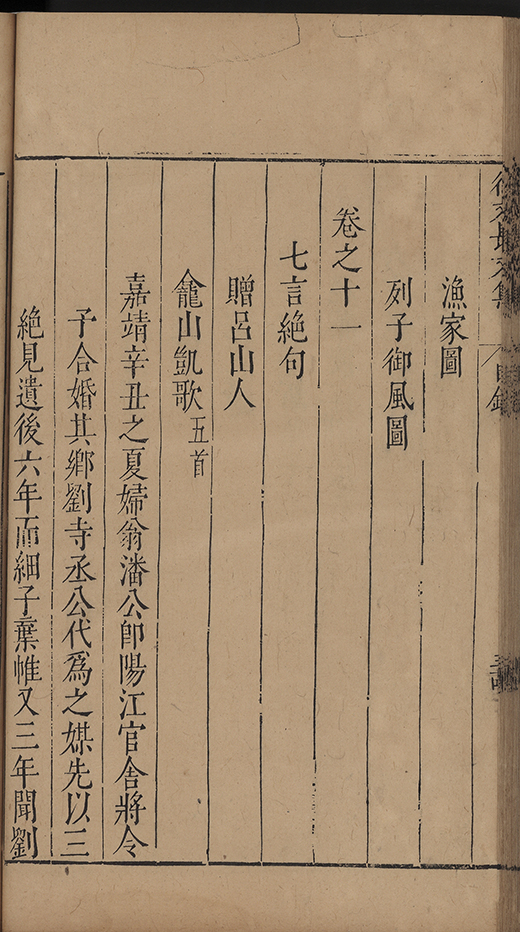 徐文長文集
目錄
漁家圖
列子御風圖
卷之十一
七言絶句
贈呂山人
龕山凱歌五首
嘉靖辛丑之夏婦翁潘公卽陽江官舍將令
予合婚其鄉劉寺丞公代爲之媒先以三
絶見遺後六年而細子棄帷又三年聞劉